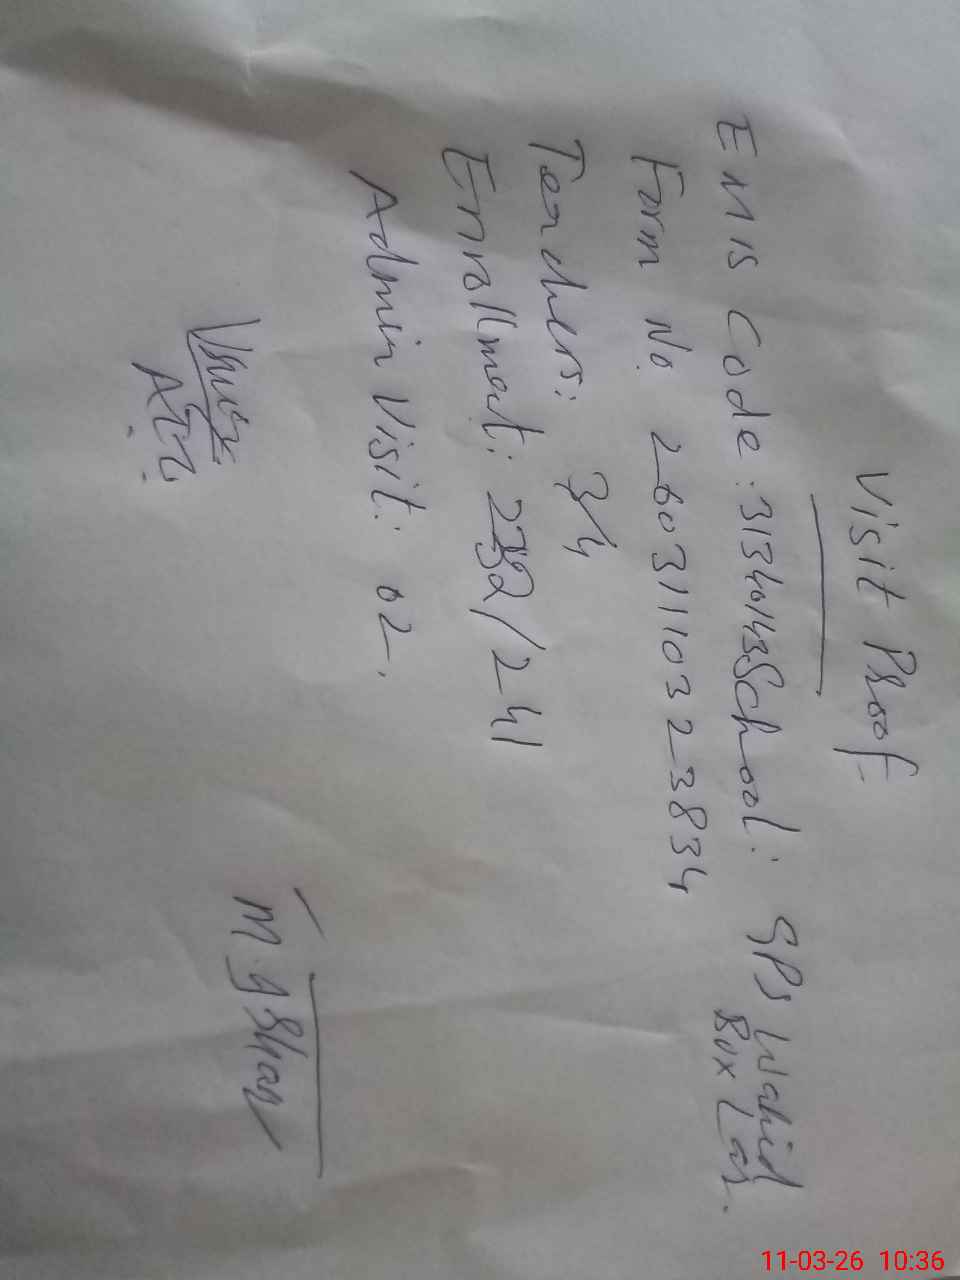 Visit Proof
EMIS Code: 31340143 School: GPS Wahid
Bux Lar.
Form No 26031110323834
Teachers: 3/4
Enrollment: 232/241
Admin Visit: 02.
Aziz
M. Ishan
11-03-26 10:36